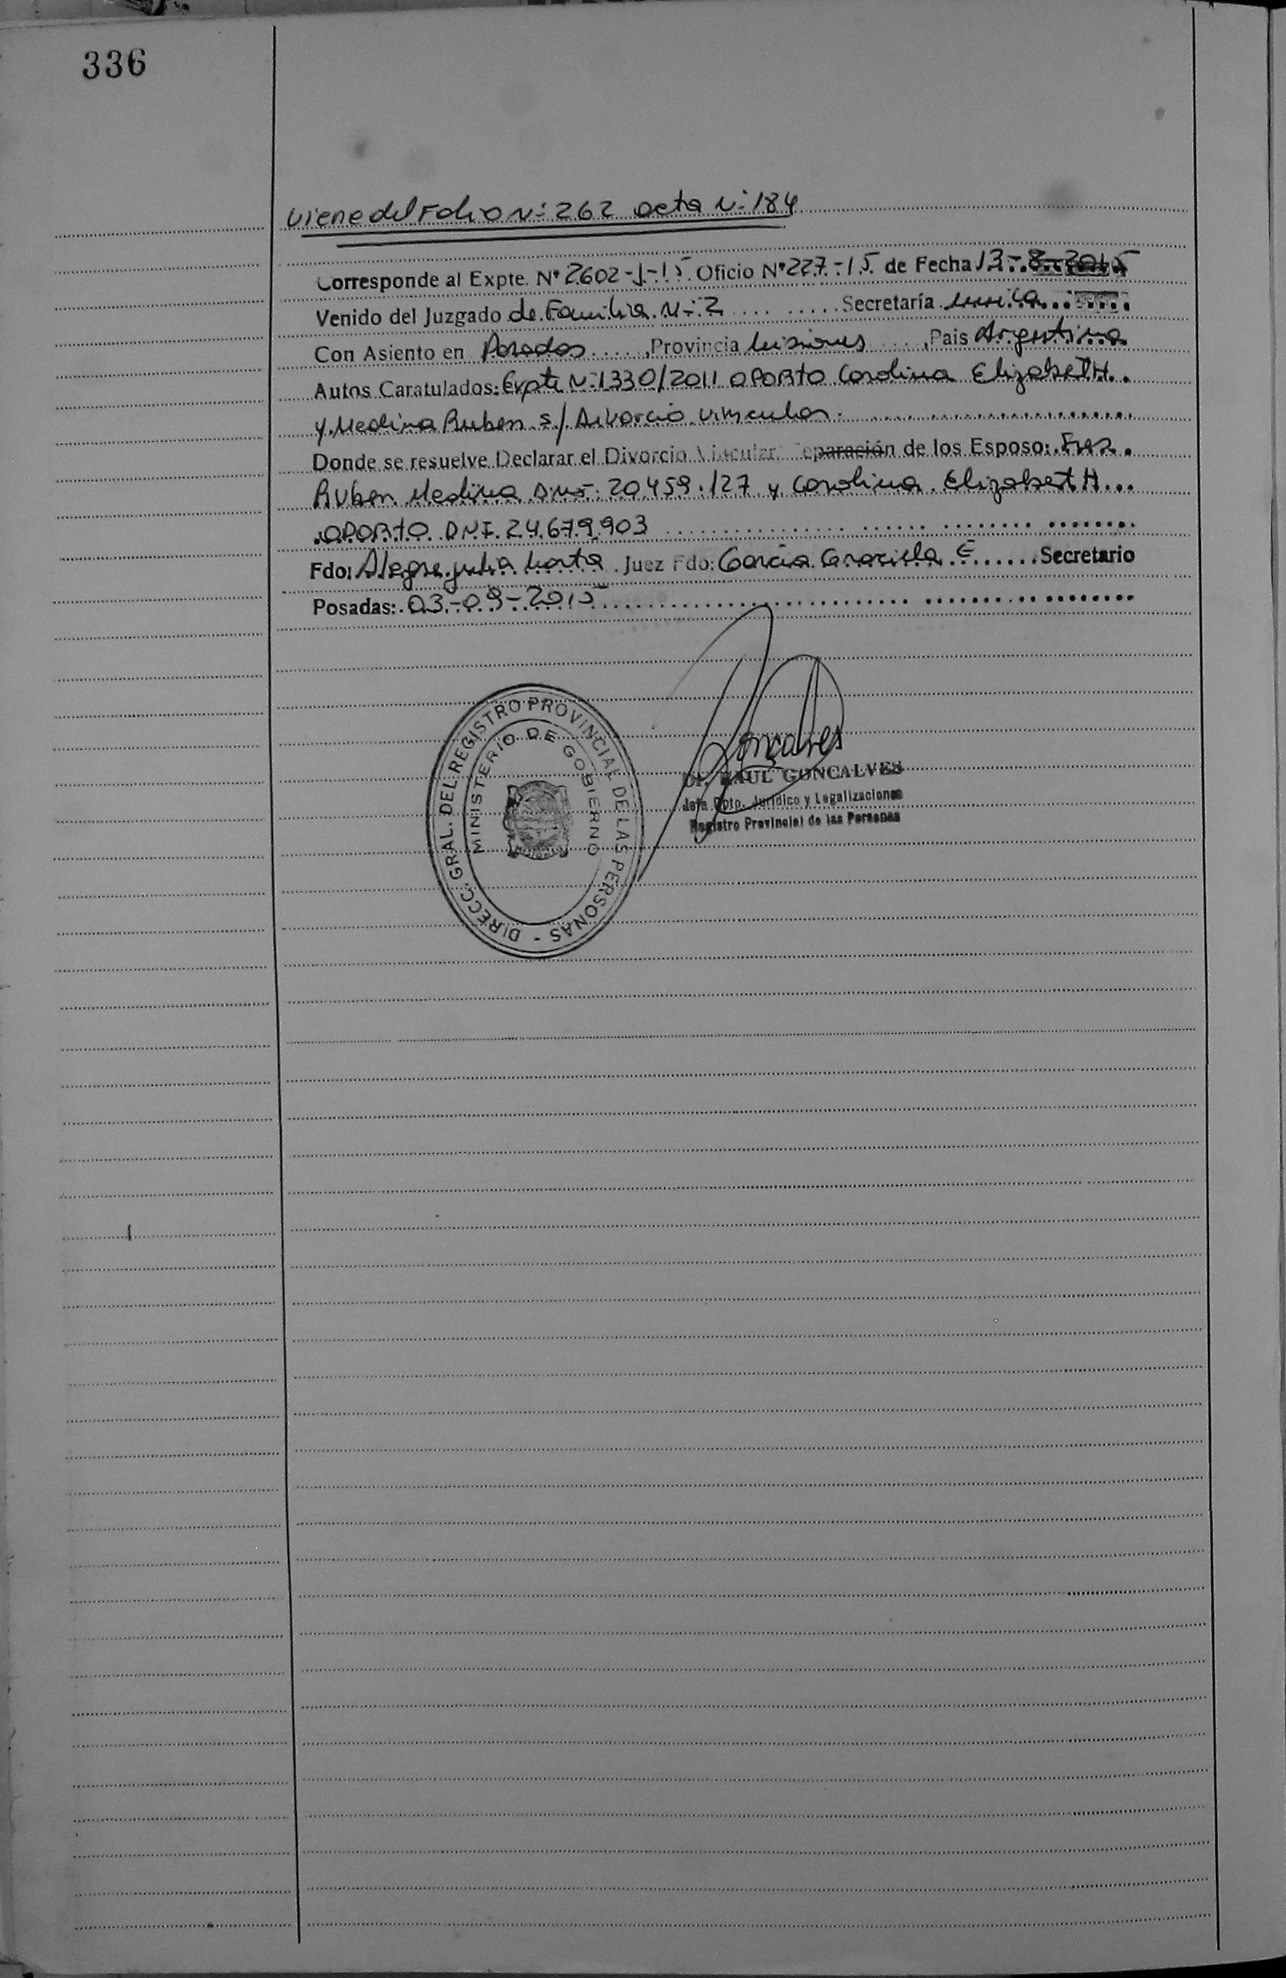 336
Viene del Folio N: 262 acta N: 184
Corresponde al Expte. N° 2602-J-15 Oficio N° 227-15 de Fecha 13-8-2015
Venido del Juzgado de Familia N: 2 Secretaría unica
Con Asiento en Posadas, Provincia Misiones, Pais Argentina
Autos Caratulados: Expte N: 1330/2011 OPORTO Carolina Elizabeth H.
y Medina Ruben s/ Divorcio vincular
Donde se resuelve Declarar el Divorcio Vincular Separación de los Esposo:
Ruben Medina DNI: 20459.127 y Carolina Elizabeth H
OPORTO DNI. 24.679.903
Fdo: Alegre Julia Marta Juez Fdo: Garcia Graciela E Secretario
Posadas: 03-09-2015
DIRECC. GRAL. DEL REGISTRO PROVINCIAL DE LAS PERSONAS -
MINISTERIO DE GOBIERNO
Goncalves
Dr. RAUL GONCALVES
Jefe Dpto. Jurídico y Legalizaciones
Registro Provincial de las Personas